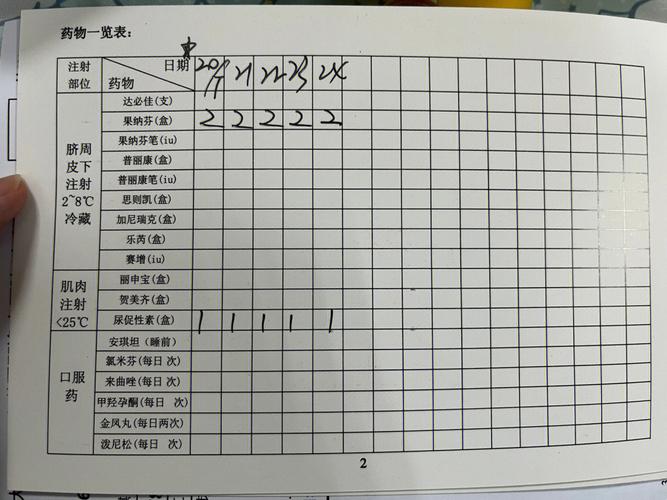 药物一览表:
注射部位 药物 日期 20/11 21 22 23 24
脐周皮下注射2~8℃冷藏
达必佳(支)
果纳芬(盒) 2 2 2 2 2
果纳芬笔(iu)
普丽康(盒)
普丽康笔(iu)
思则凯(盒)
加尼瑞克(盒)
乐芮(盒)
赛增(iu)
肌肉注射<25℃
丽申宝(盒)
贺美齐(盒)
尿促性素(盒) 1 1 1 1 1
口服药
安琪坦(睡前)
氯米芬(每日 次)
来曲唑(每日 次)
甲羟孕酮(每日 次)
金凤丸(每日两次)
泼尼松(每日 次)
2